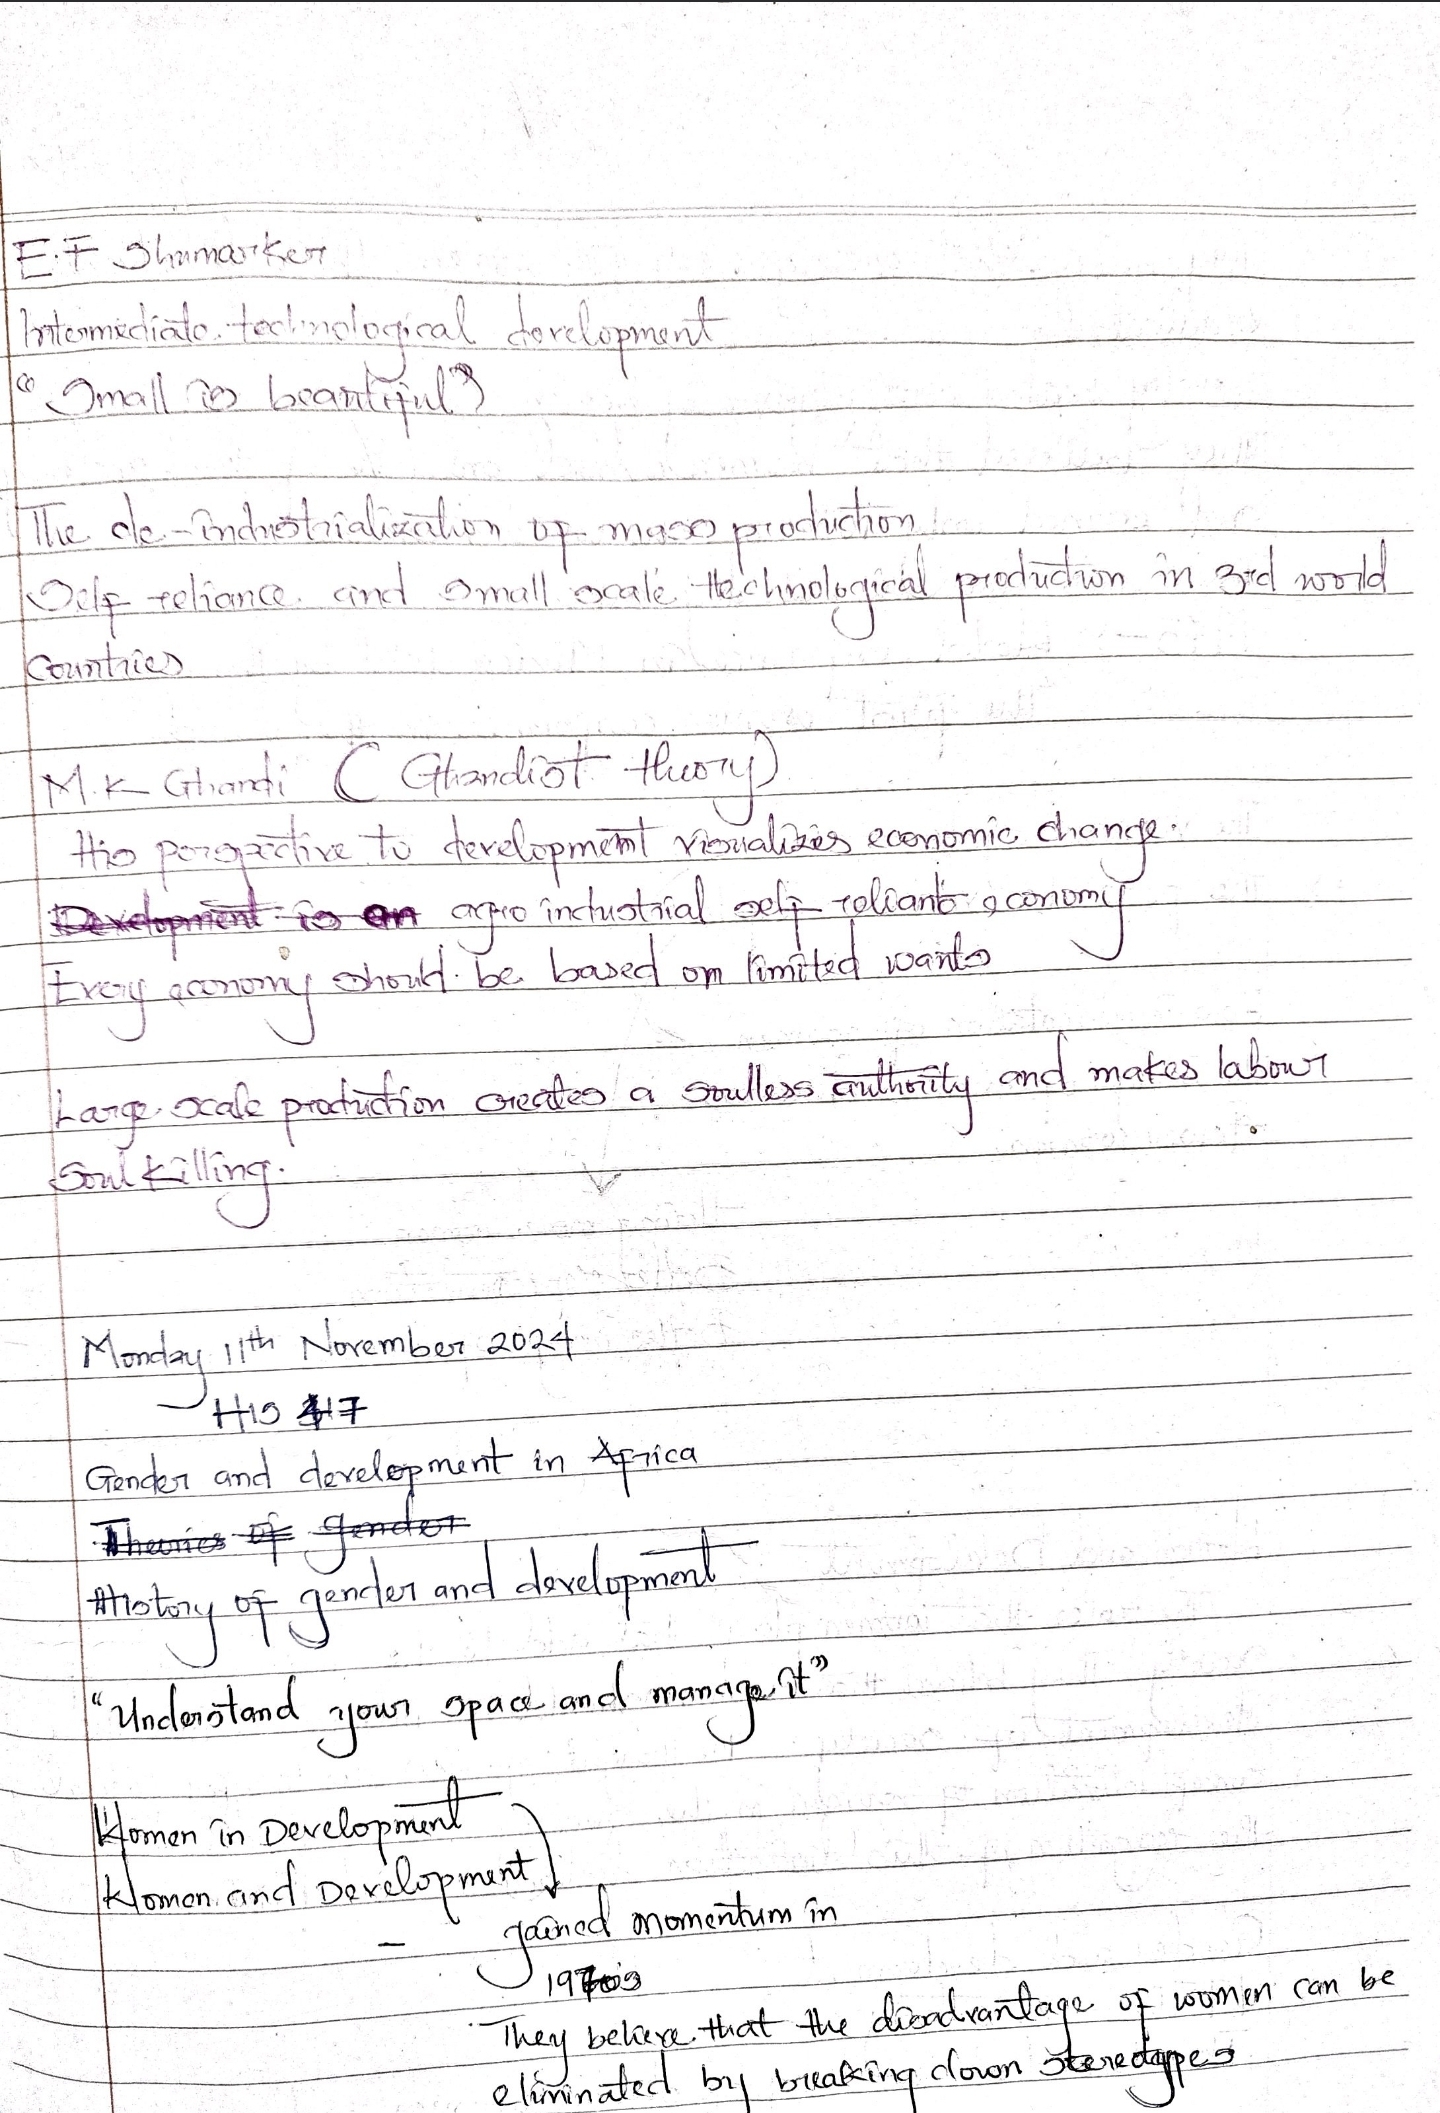 E.F Shumarker
Intermediate technological development
"Small is beautiful"
The de-industrialization of mass production
Self reliance and small scale technological production in 3rd world
Countries
M.K Ghandi ( Ghandist theory)
His perspective to development visualizes economic change.
Development is an agro industrial self reliant economy
Every economy should be based on limited wants
Large scale production creates a soulless authority and makes labour
Soul killing.
Monday 11th November 2024
HIS 417
Gender and development in Africa
Theories of gender
History of gender and development
"Understand your space and manage it"
Women in Development
Women and Development
gained momentum in
-
1970s
They believe that the disadvantage of women can be
eliminated by breaking down stereotypes